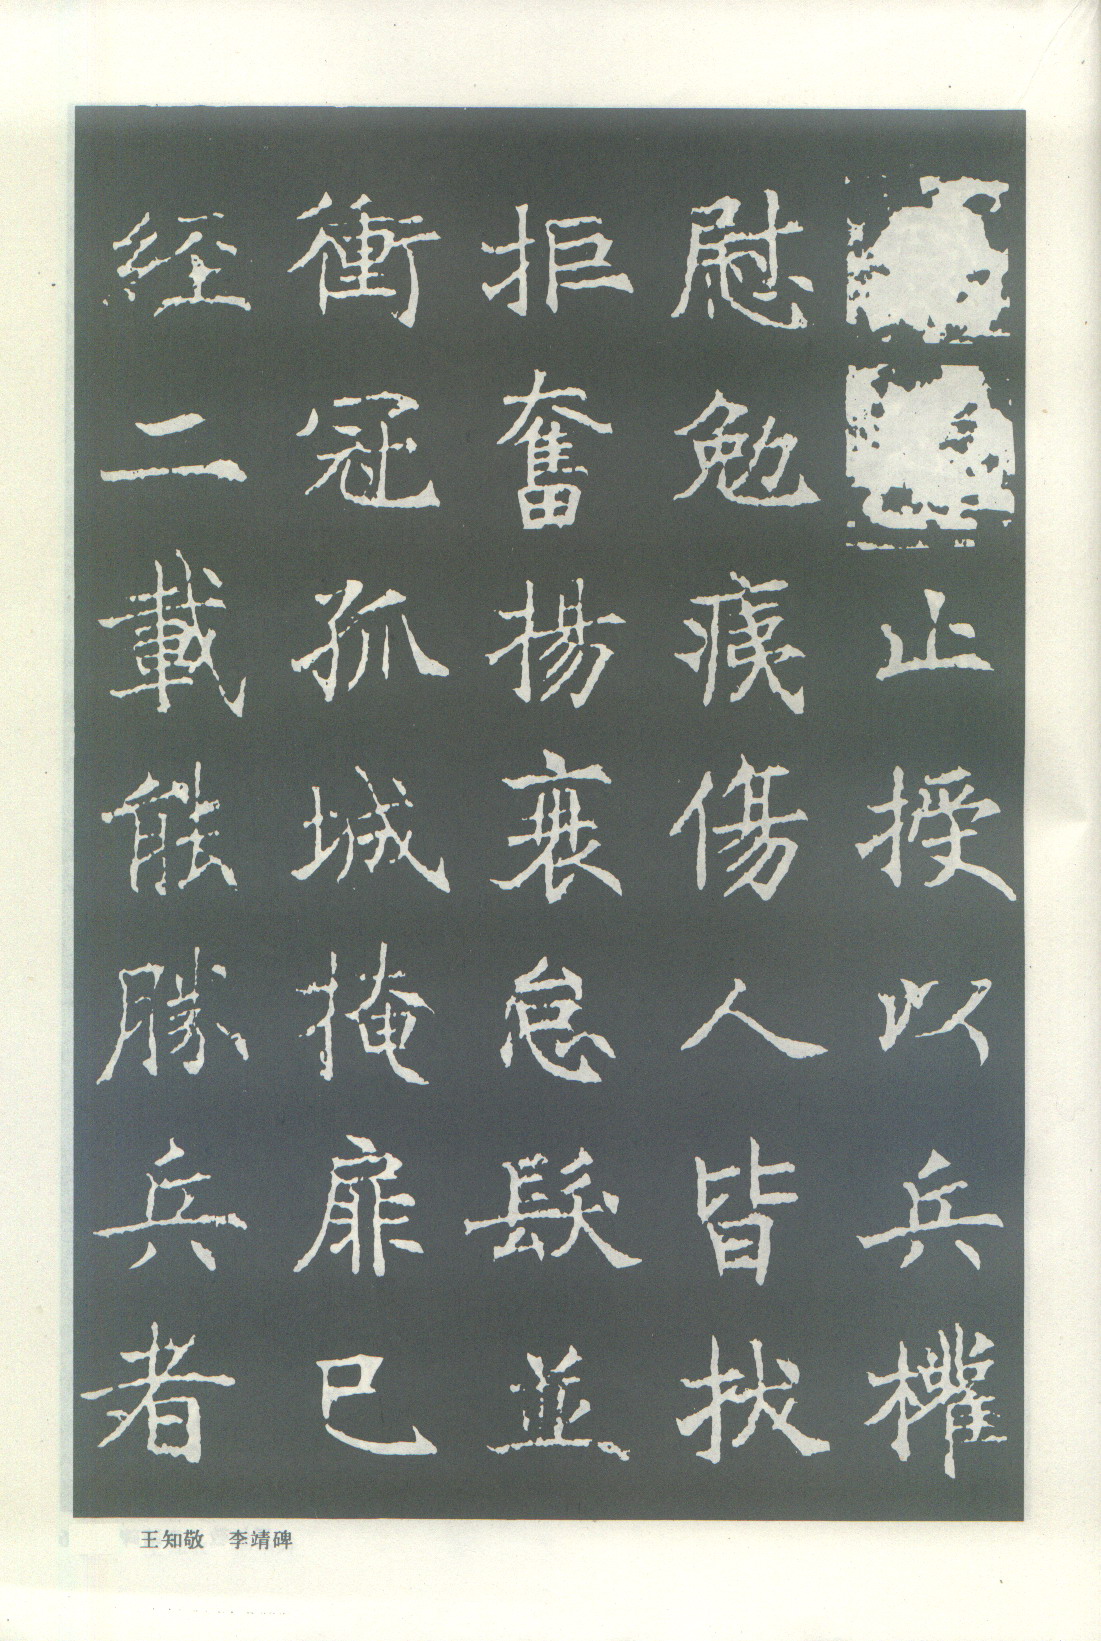 止授以兵權
慰勉痍傷人皆拔
拒奮揚衰怠髮並
衝冠孤城掩扉已
經二載能勝兵者
王知敬 李靖碑